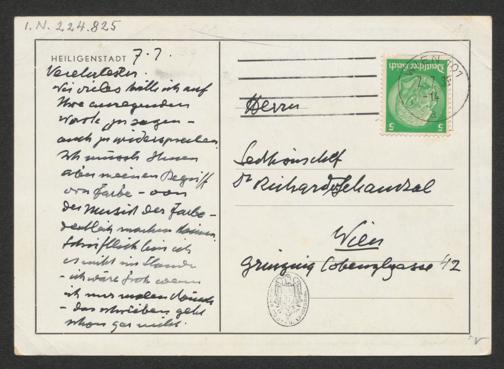 I.N. 224.825
HEILIGENSTADT 7.7.
Verehrtester.
Wie vieles hätte ich auf
Ihre anregenden
Worte "zu sagen –
auch zu widersprechen.
Ich müsste Ihnen
aber meinen Begriff
von Farbe – von
der Musik der Farbe –
deutlich machen können.
Schriftlich bin ich
es nicht im Stande
– ich wäre froh wenn
ich nur malen könnte
– das schreiben geht
schon gar nicht.
Herrn
Sektionschef
Dr Richard Schaukal
Wien
Grinzing Cobenzlgasse 42
Deutsches Reich
5
5
101